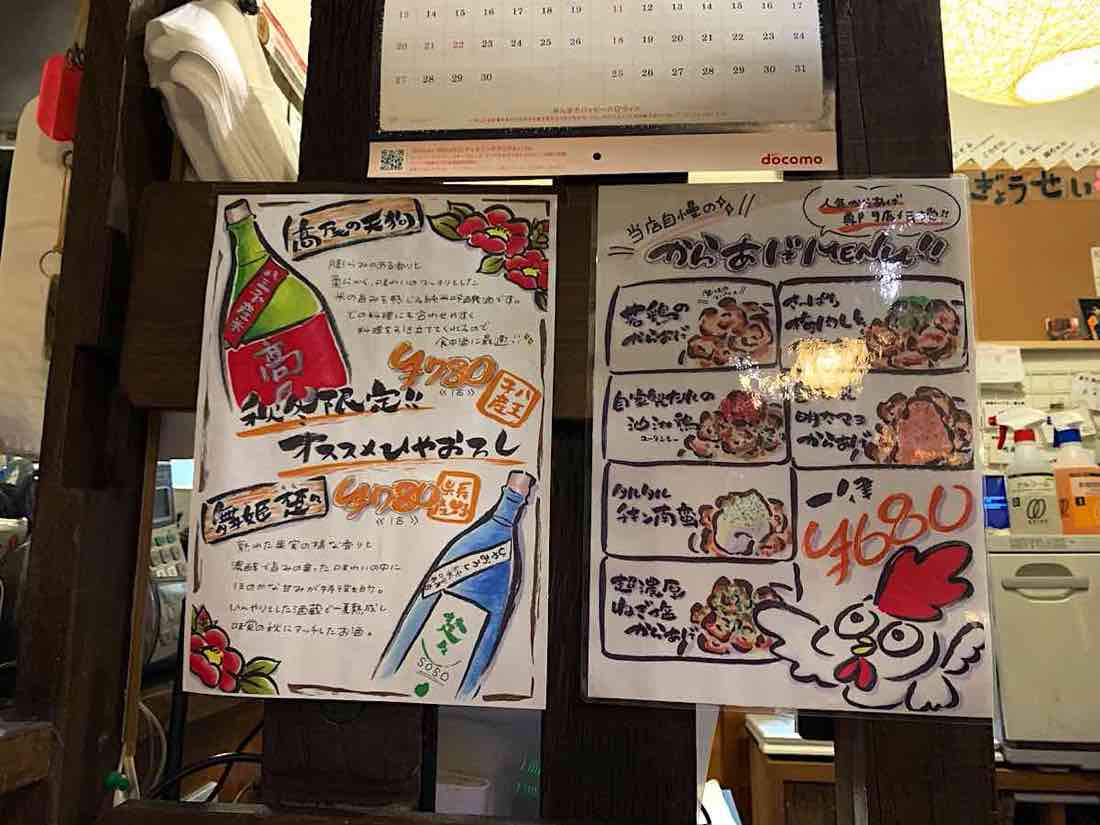 13 14 15 16 17 18 19
11 12 13 14 15 16 17
20 21 22 23 24 25 26
18 19 20 21 22 23 24
27 28 29 30
25 26 27 28 29 30 31
docomo
高尾の天狗
膨らみのある香りと
柔らかく、味わいのスッキリとした
米の旨みを感じる純米吟醸酒です。
どの料理にも合わせやすく
料理を引き立ててくれるので
食中酒に最適!!
八王子産米
高
¥780
《1合》
八王子産
秋冬限定!!
オススメひやおろし
舞姫 楚々
¥780
《1合》
長野県産
熟れた果実の様な香りと
濃醇で旨みの乗った味わいの中に
ほのかな甘みが特徴的。
ひんやりとした酒蔵で一夏熟成し
味覚の秋にマッチしたお酒。
SOSO
当店自慢の
からあげMENU!!
若鶏の
からあげ
さっぱり
おろし
自家製だれの
油淋鶏
ユーリンチー
明太マヨ
からあげ
タルタル
チキン南蛮
超濃厚
ねぎ塩
からあげ
一律
¥680
ぎょうせい